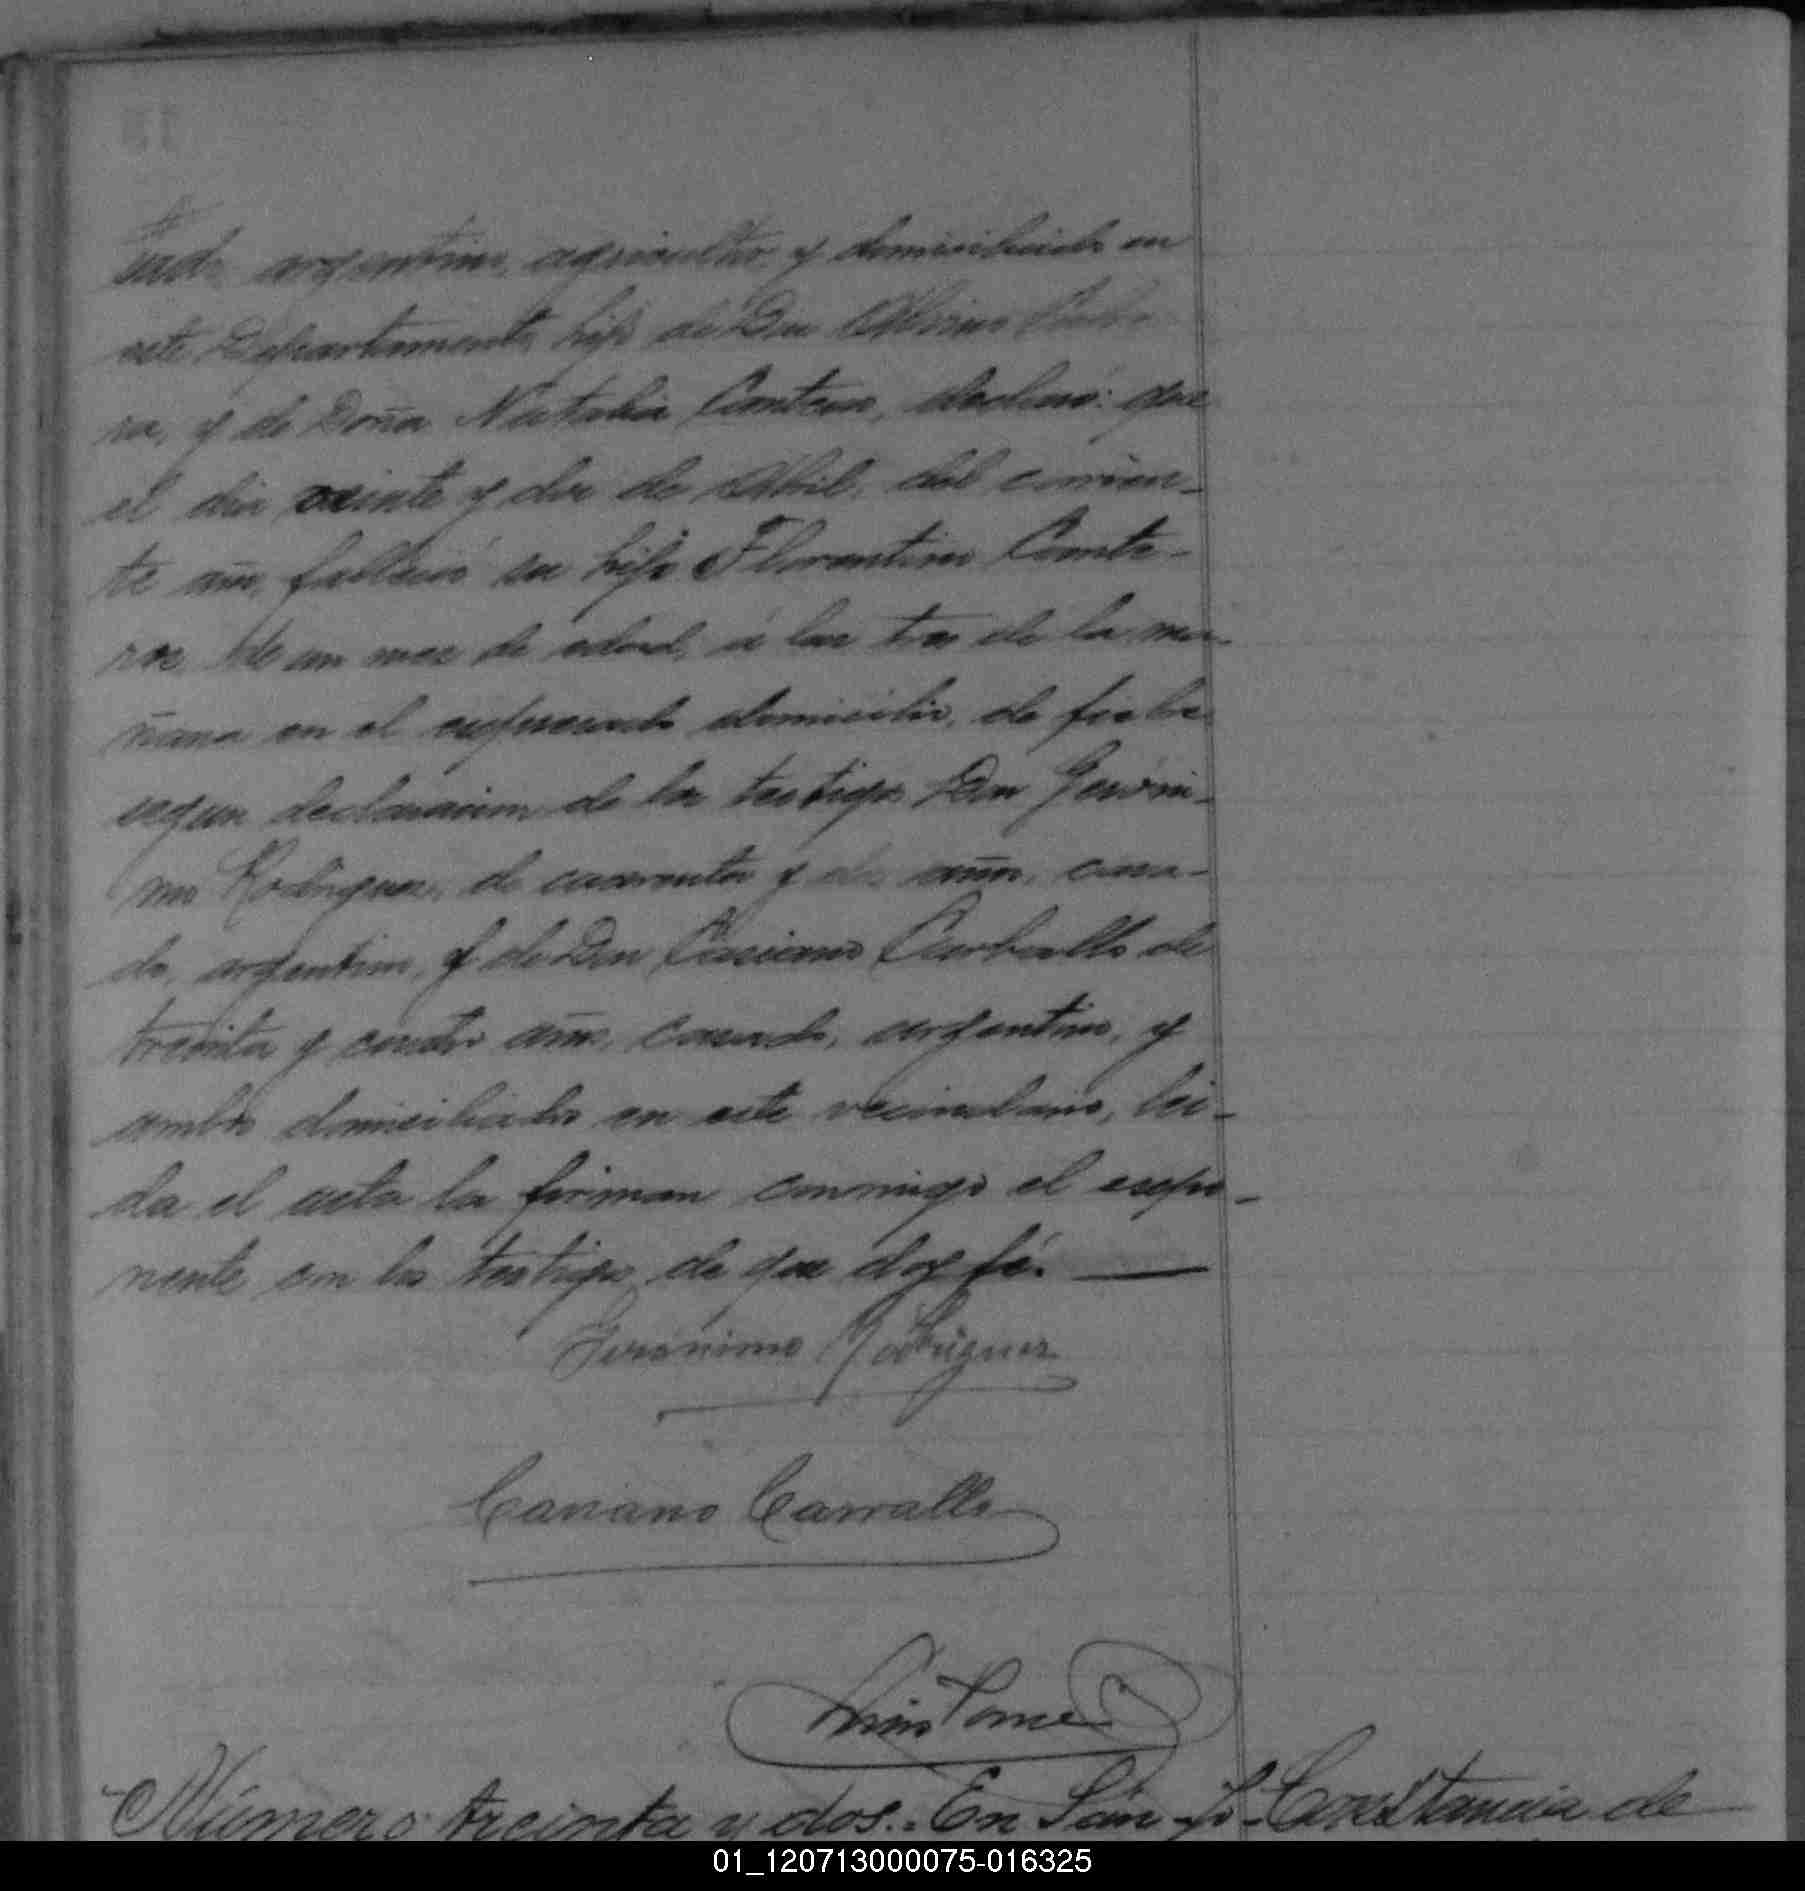 sado argentino, agricultor, y domiciliado en
este Departamento, hijo de Don Albino
ra, y de Doña Natalia Contrera, declaró: que
el dia veinte y dos de Abril, del corrien-
te año, falleció su hijo Florentino Contre-
ra, de un mes de edad, á las tres de la ma-
ñana en el espresado domicilio, de fiebre
segun declaracion de los testigos Don Geróni-
mo Rodriguez, de cuarenta y dos años, casa-
do, argentino, y de Don Casiano Carballo de
treinta y cuatro años, casado, argentino, y
ambos domiciliados en este vecindario, lei-
da el acta la firman conmigo el espo-
nente con los testigos de que doy fé.
Gerónimo Rodriguez
Casiano Carvallo
Luis Tome
Número treinta y dos.. En San Constancia de
01_120713000075-016325